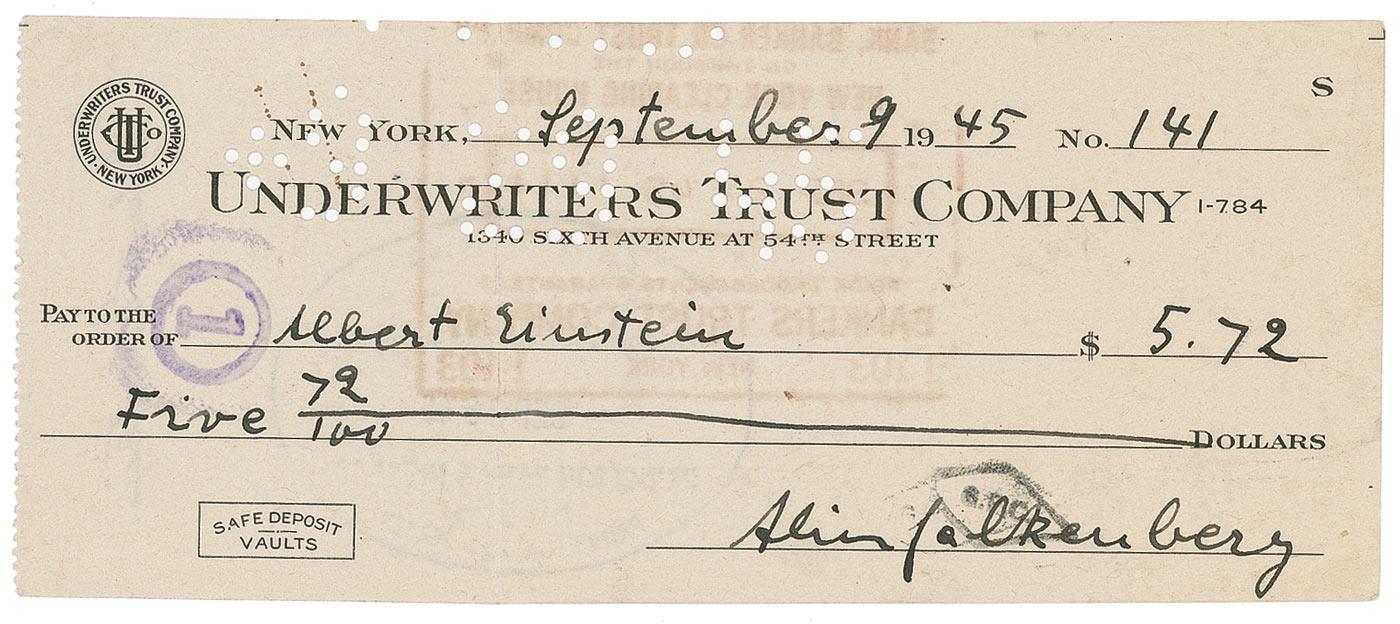 S
UNDERWRITERS TRUST COMPANY
· NEW YORK ·
NEW YORK, September 9 1945 No. 141
UNDERWRITERS TRUST COMPANY 1-784
1340 SIXTH AVENUE AT 54TH STREET
PAY TO THE
ORDER OF Albert Einstein $ 5.72
Five 72/100 DOLLARS
SAFE DEPOSIT
VAULTS
Falkenberg
1